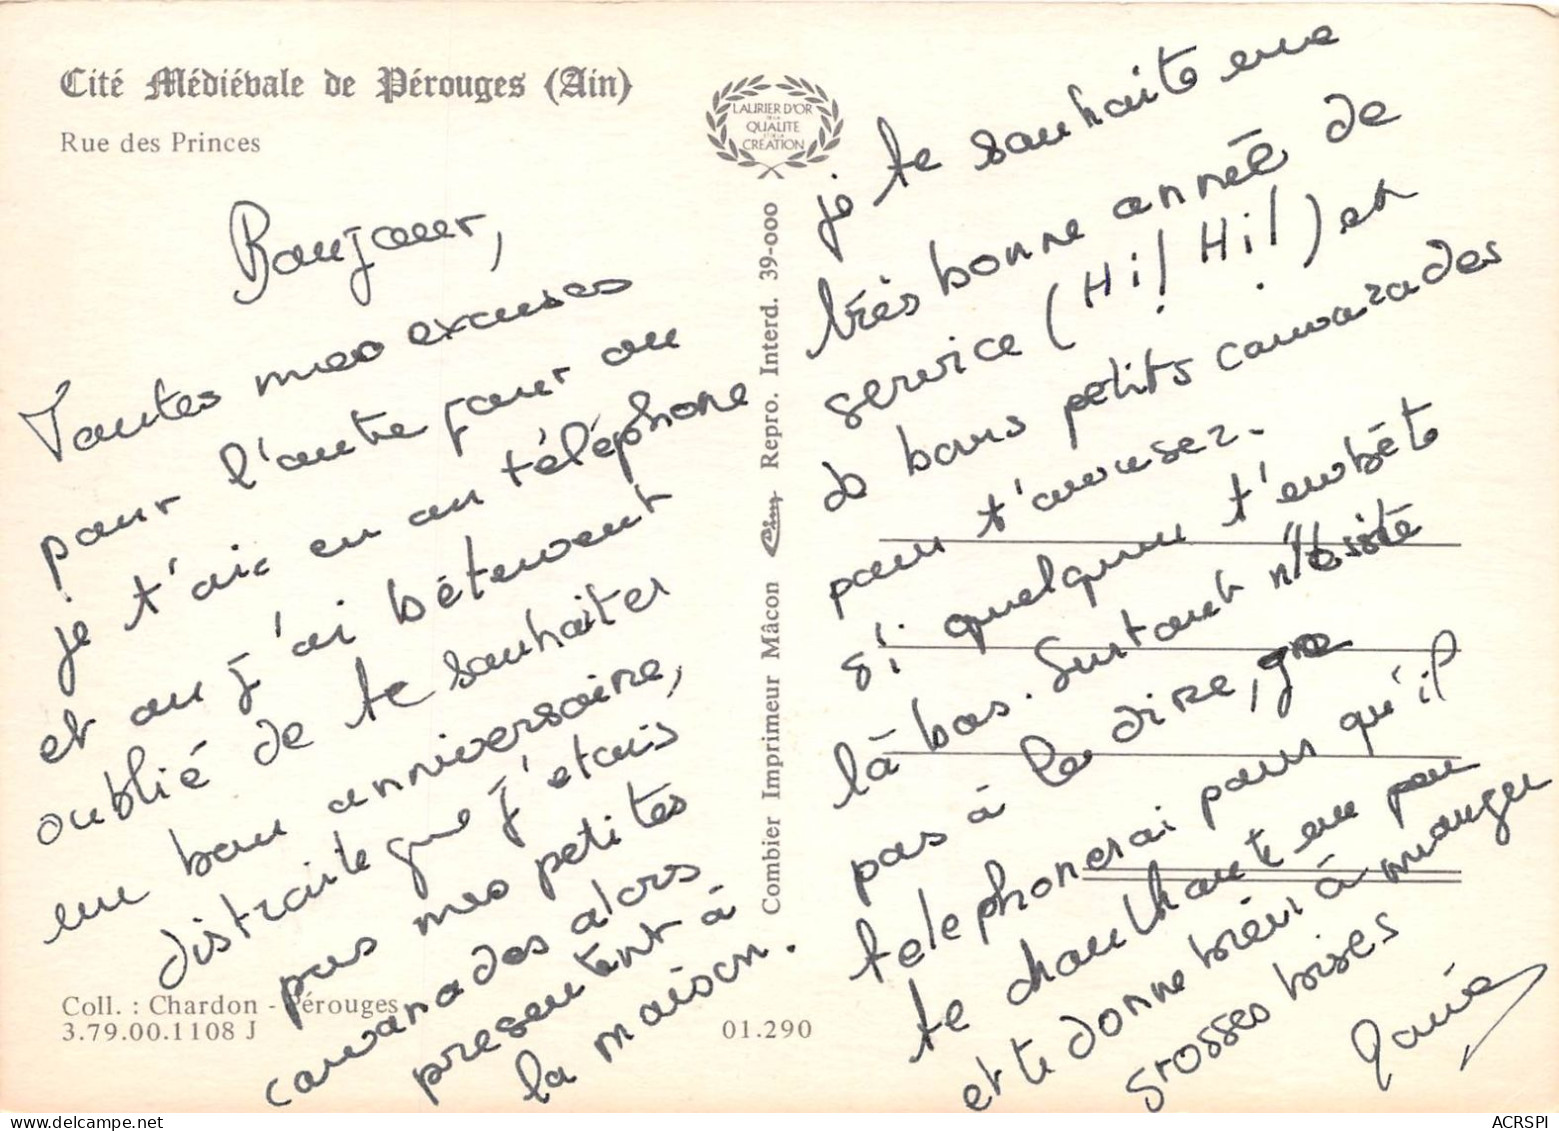 Cité Médiévale de Pérouges (Ain)
Rue des Princes
Bonjour,
Toutes mes excuses
pour l'autre jour où
je t'ai eu au téléphone
et où j'ai bêtement
oublié de te souhaiter
un bon anniversaire,
distraite que j'étais
par mes petites
camarades alors
présentent à
la maison.
Coll. : Chardon - Pérouges
3.79.00.1108 J
01.290
LAURIER D'OR
DE LA
QUALITE
ET DE LA
CREATION
Combier Imprimeur Mâcon Cim Repro. Interd. 39-000
je te souhaite une
très bonne année de
service (Hi! Hi!) et
de bons petits camarades
pour t'amuser.
Si quelqu'un t'embête
là bas. Surtout n'hésite
pas à le dire, je
telephonerai pour qu'il
te chouchoute un peu
et te donne bien à manger
grosses bises
ACRSPI